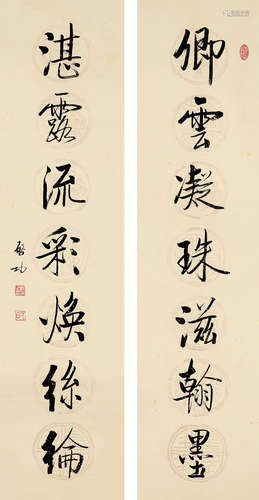 卿雲凝珠滋翰墨
湛露流彩焕絲綸
啓功